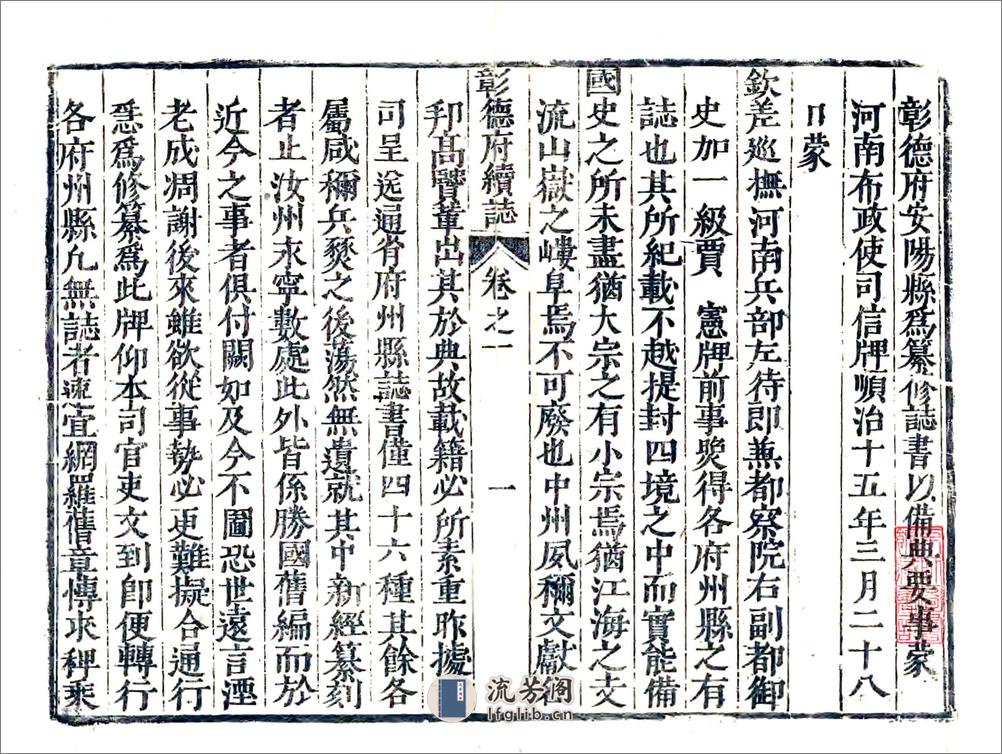 彰德府安陽縣爲纂修誌書以備典要事蒙
河南布政使司信牌順治十五年三月二十八
日蒙
欽差巡撫河南兵部左侍郎兼都察院右副都御
史加一級賈　憲牌前事照得各府州縣之有
誌也其所紀載不越提封四境之中而實能備
國史之所未盡猶大宗之有小宗焉猶江海之支
流山嶽之嶁阜焉不可廢也中州夙稱文獻
彰德府續誌　卷之一　一
邦髙賢輩出其於典故載籍必所素重昨據
司呈送通省府州縣誌書僅四十六種其餘各
屬咸稱兵燹之後蕩然無遺就其中新經纂刻
者止汝州永寧數處此外皆係勝國舊編而於
近今之事者俱付闕如及今不圖恐世遠言湮
老成凋謝後來雖欲從事勢必更難擬合通行
爲修纂爲此牌仰本司官吏文到即便轉行
各府州縣凡無誌者速宜網羅舊章慱求稗乘
流芳阁
lfglib.cn